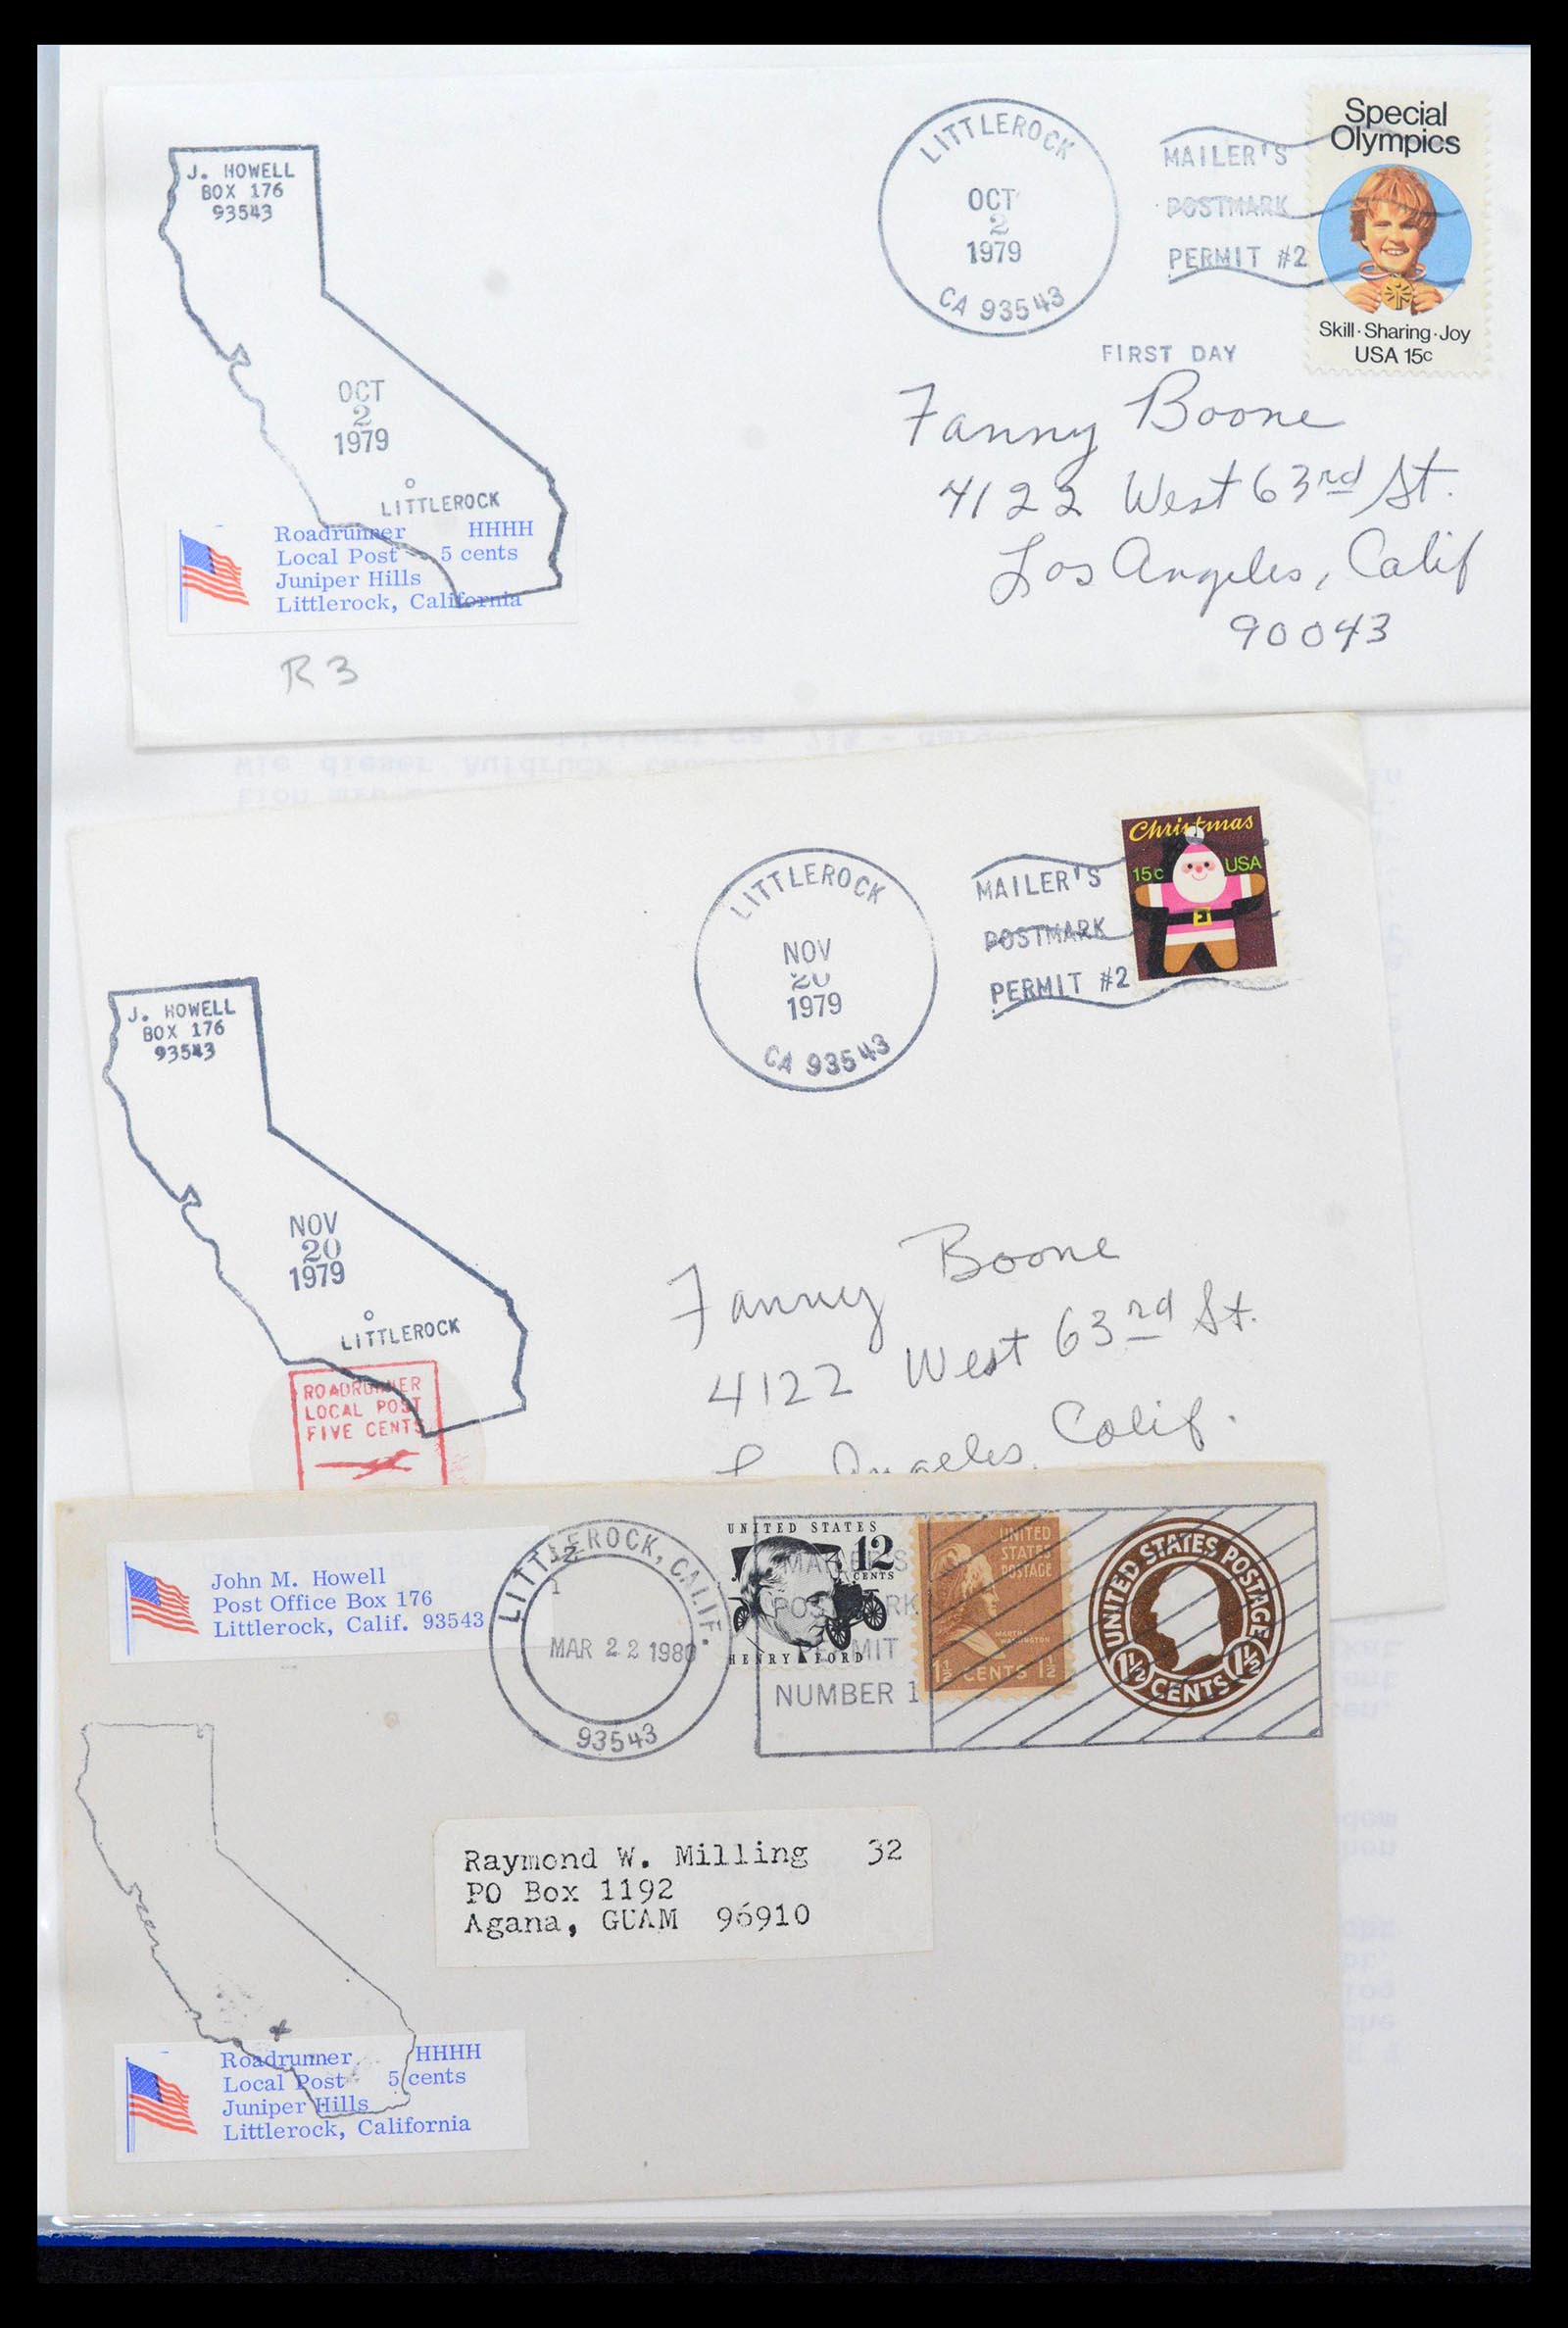 J. HOWELL
BOX 176
93543
LITTLEROCK
OCT
2
1979
CA 93543
MAILER'S
POSTMARK
PERMIT #2
FIRST DAY
Special
Olympics
Skill·Sharing·Joy
USA 15c
OCT
2
1979
LITTLEROCK
Roadrunner HHHH
Local Post 5 cents
Juniper Hills
Littlerock, California
R3
Fanny Boone
4122 West 63rd St.
Los Angeles, Calif
90043
LITTLEROCK
NOV
20
1979
CA 93543
MAILER'S
POSTMARK
PERMIT #2
Christmas
15c USA
J. HOWELL
BOX 176
93543
NOV
20
1979
LITTLEROCK
ROADRUNNER
LOCAL POST
FIVE CENTS
Fanny Boone
4122 West 63rd St.
Los Angeles, Calif.
John M. Howell
Post Office Box 176
Littlerock, Calif. 93543
LITTLEROCK, CALIF.
MAR 22 1980
93543
MAILER'S
POSTMARK
PERMIT
NUMBER 1
UNITED STATES
12
CENTS
HENRY FORD
UNITED
STATES
POSTAGE
MARTHA
WASHINGTON
1½ CENTS 1½
UNITED STATES POSTAGE
1½ CENTS 1½
Raymond W. Milling 32
PO Box 1192
Agana, GUAM 96910
Roadrunner HHHH
Local Post 5 cents
Juniper Hills
Littlerock, California